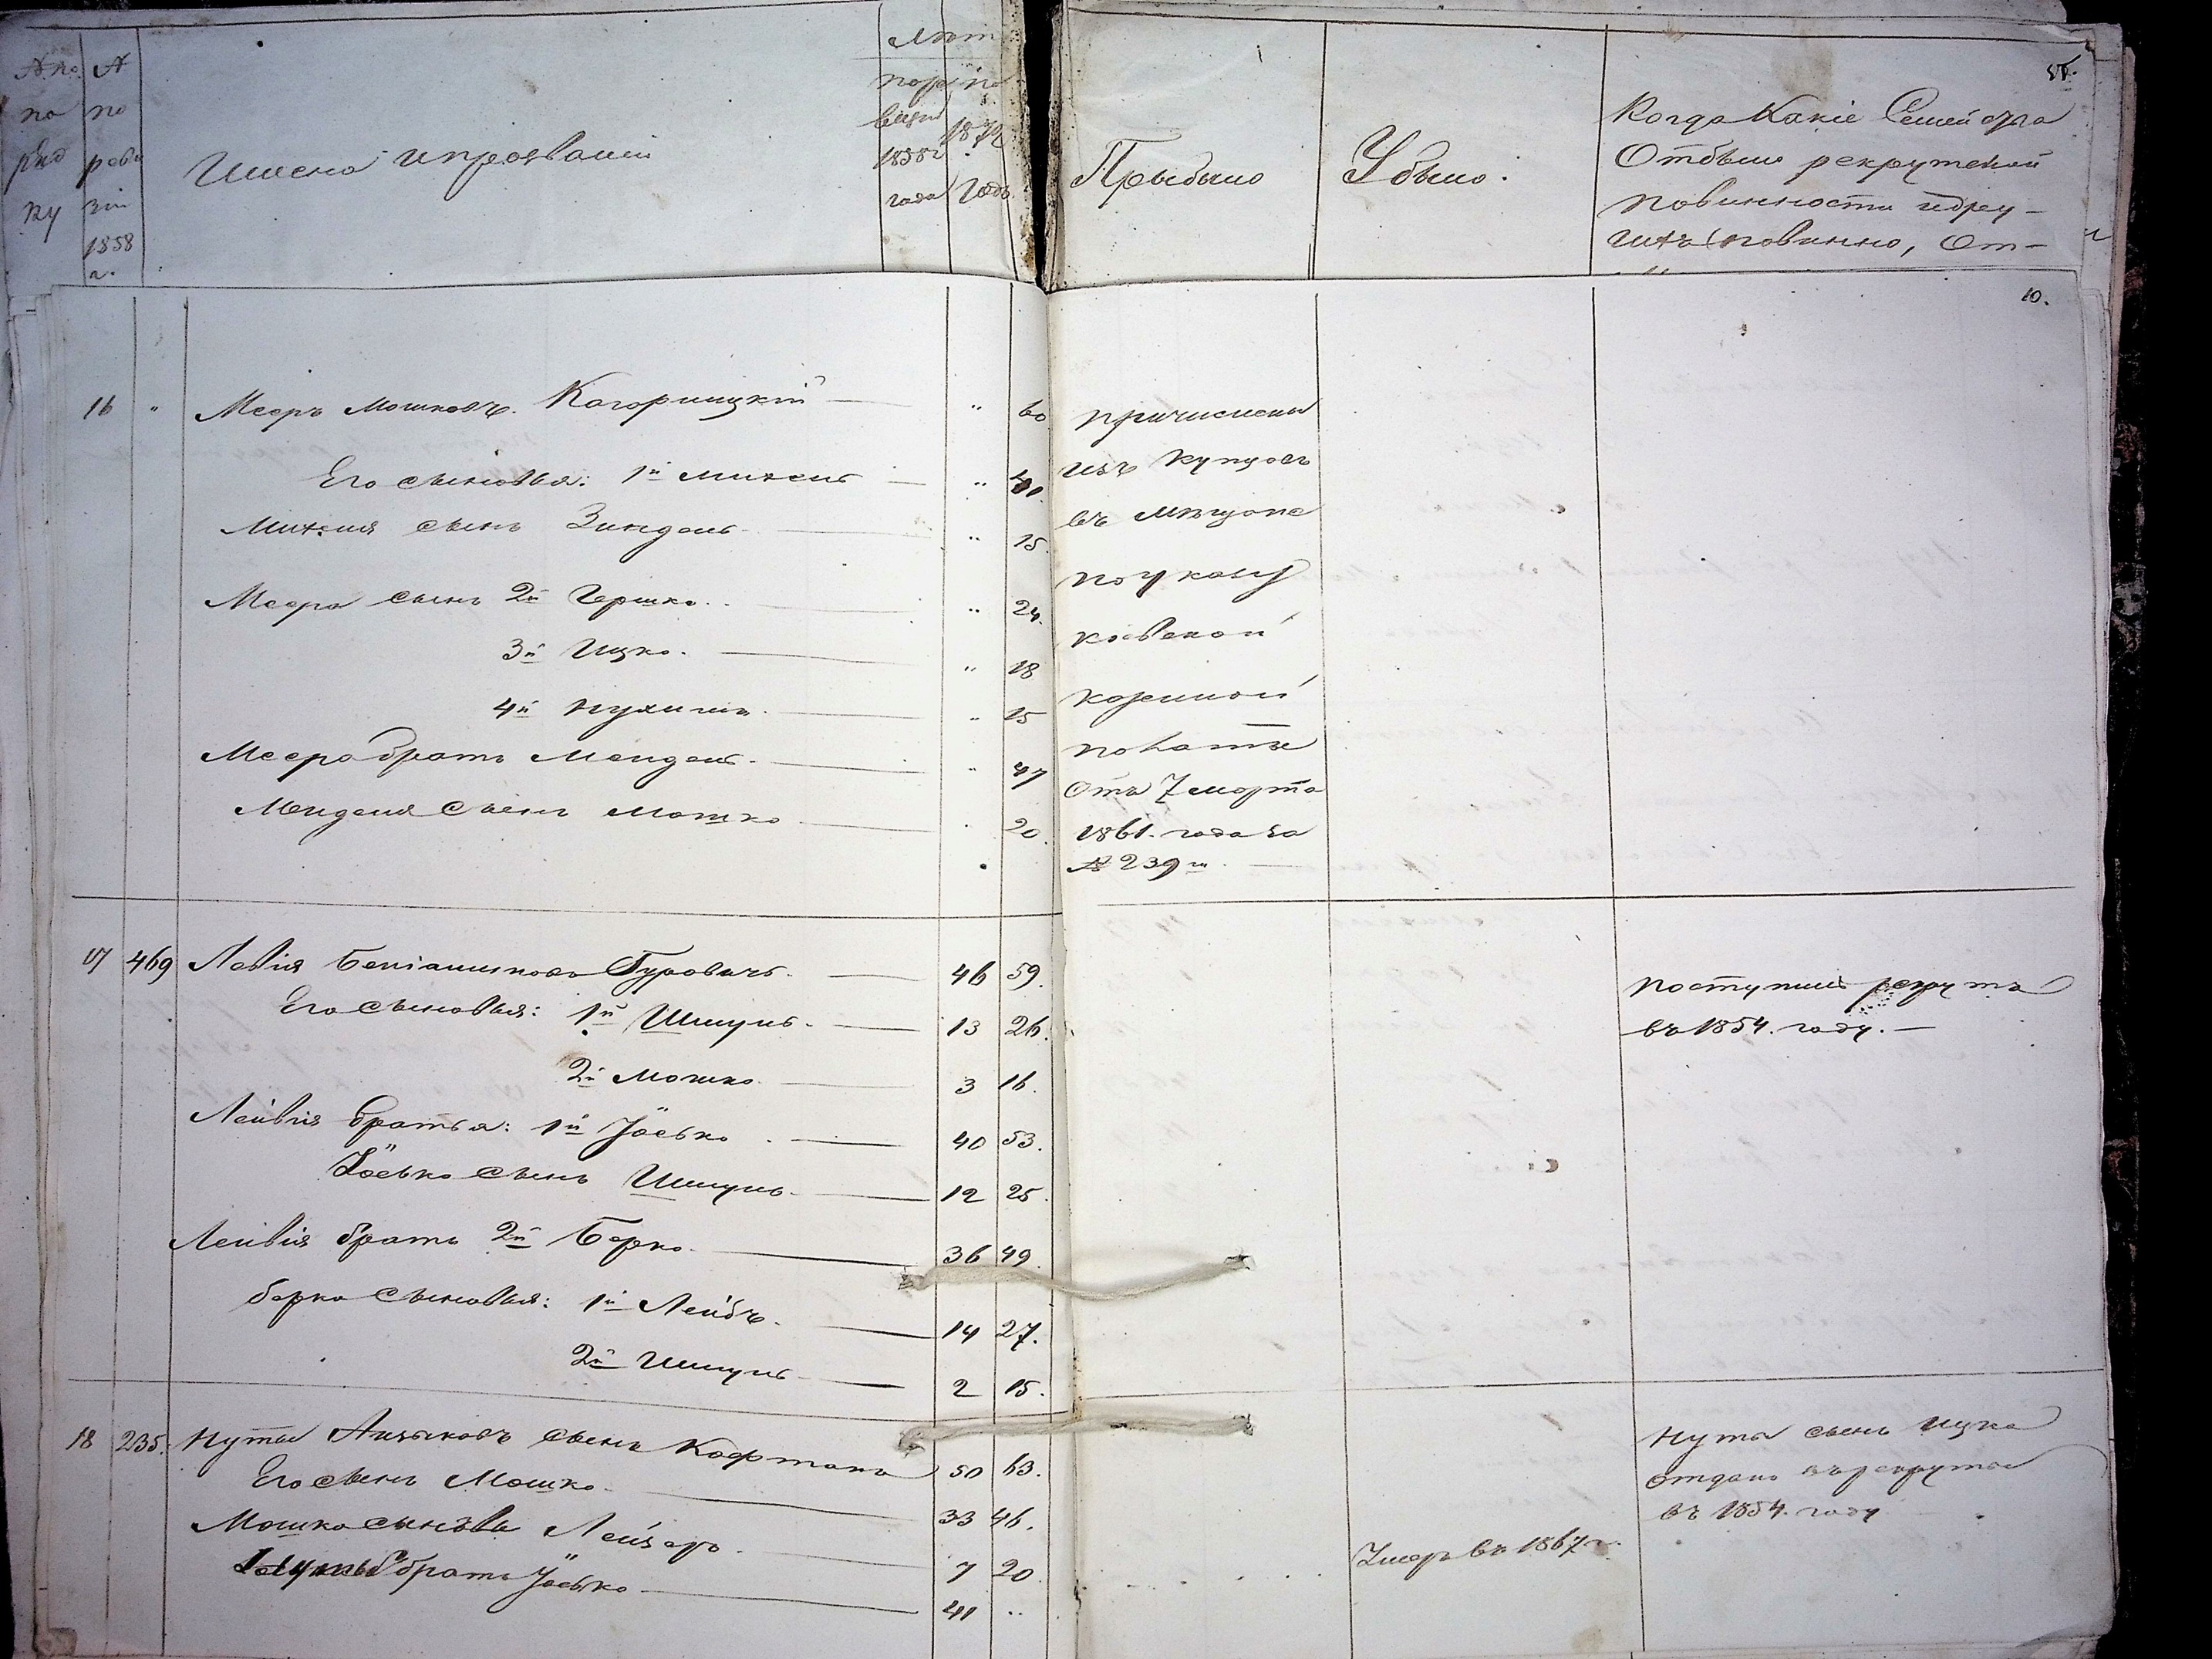 по
ряд
ку
А
по
реви
зіи
1858
г.
Имена и прозваній
Лѣт
1858
года
по
1872
Года
Прыбыло
Убыло.
Когда Какіе Семейства
Отбыли рекрутской
повинности и дру-
гихъ повинно, От-
10.
16 " Мееръ Мошковъ Кагорлицкій " 60
Его сыновья: 1й " 40.
сынъ Зиндель " 15.
Меера сынъ 2й Гершко " 24.
3й Ицко. " 18
4й Нухимъ " 15
Меера братъ Мендель " 47
Менделя Сынъ Мошко 20.
причислены
изъ Купцовъ
въ Мѣщане
по указу
Кіевской
Казенной
Палаты
Отъ 7 марта
1861. года за
№ 239м
17 469 Левія Беніаминовъ Гуровичъ 46 59.
Его Сыновья: 1й Шмуль 13 26.
2й Мошко 3 16.
Лейвія братья: 1й Іосько 40 53.
Іосько Сынъ Шмуль 12 25.
Лейвія братъ 2й Берко 36 49.
Берко Сыновья: 1й Лейбъ. 14 27.
2й Шмуль 2 15.
поступилъ рекрутъ
въ 1854. году.
18 235. Нута сынъ Кафтанъ 50 63.
Его сынъ Мошко 33 46.
Мошко сыновья Лейзеръ 7 20
братъ Іосько 41 "
Умеръ въ 1867 г.
Нута сынъ Ицко
отданъ въ рекруты
въ 1854. году